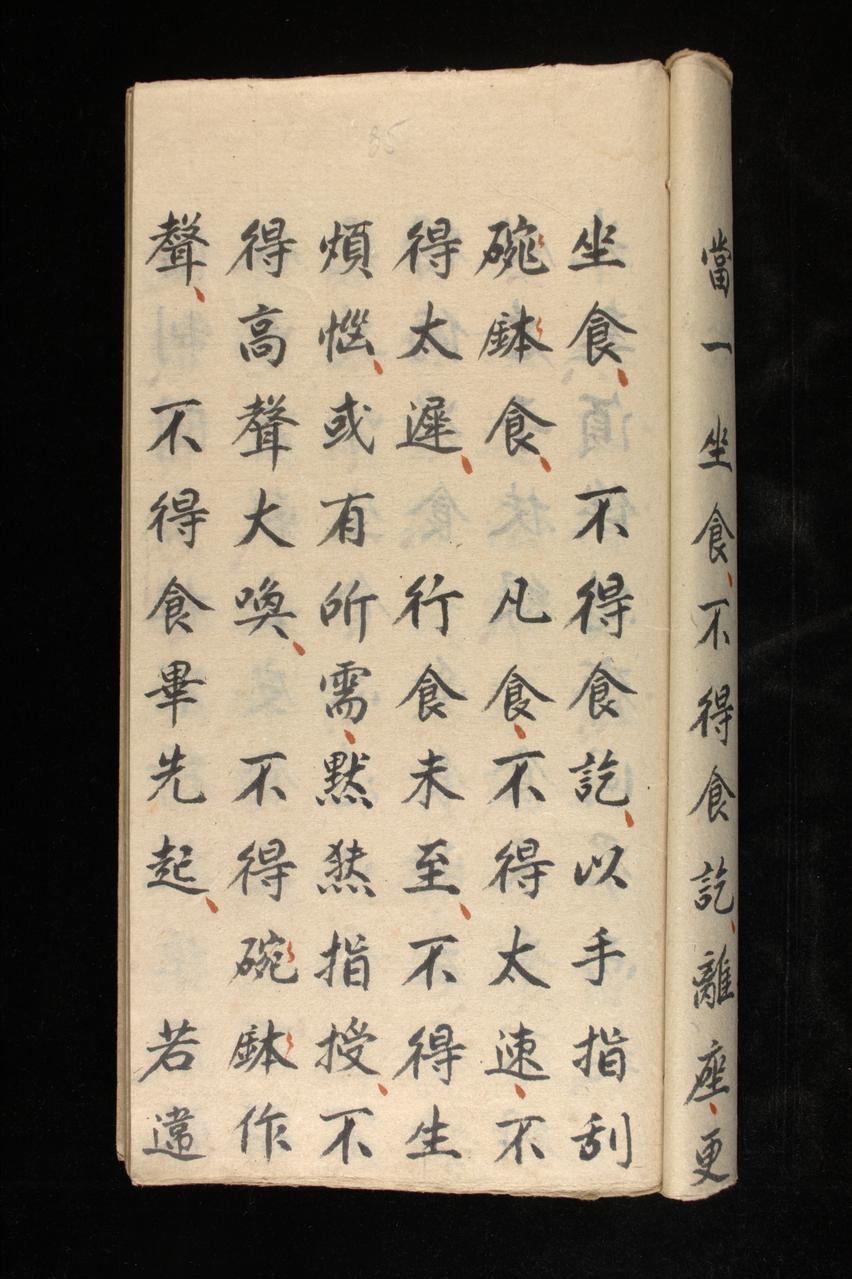 當一坐食、不得食訖、離座、更
坐食、　不得食訖、以手指刮
碗鉢食、　凡食、不得太速、不
得太遲、　行食未至、不得生
煩惱、或有所需、默然指授、不
得高聲大喚、　不得碗鉢作
聲、　不得食畢先起、　若違